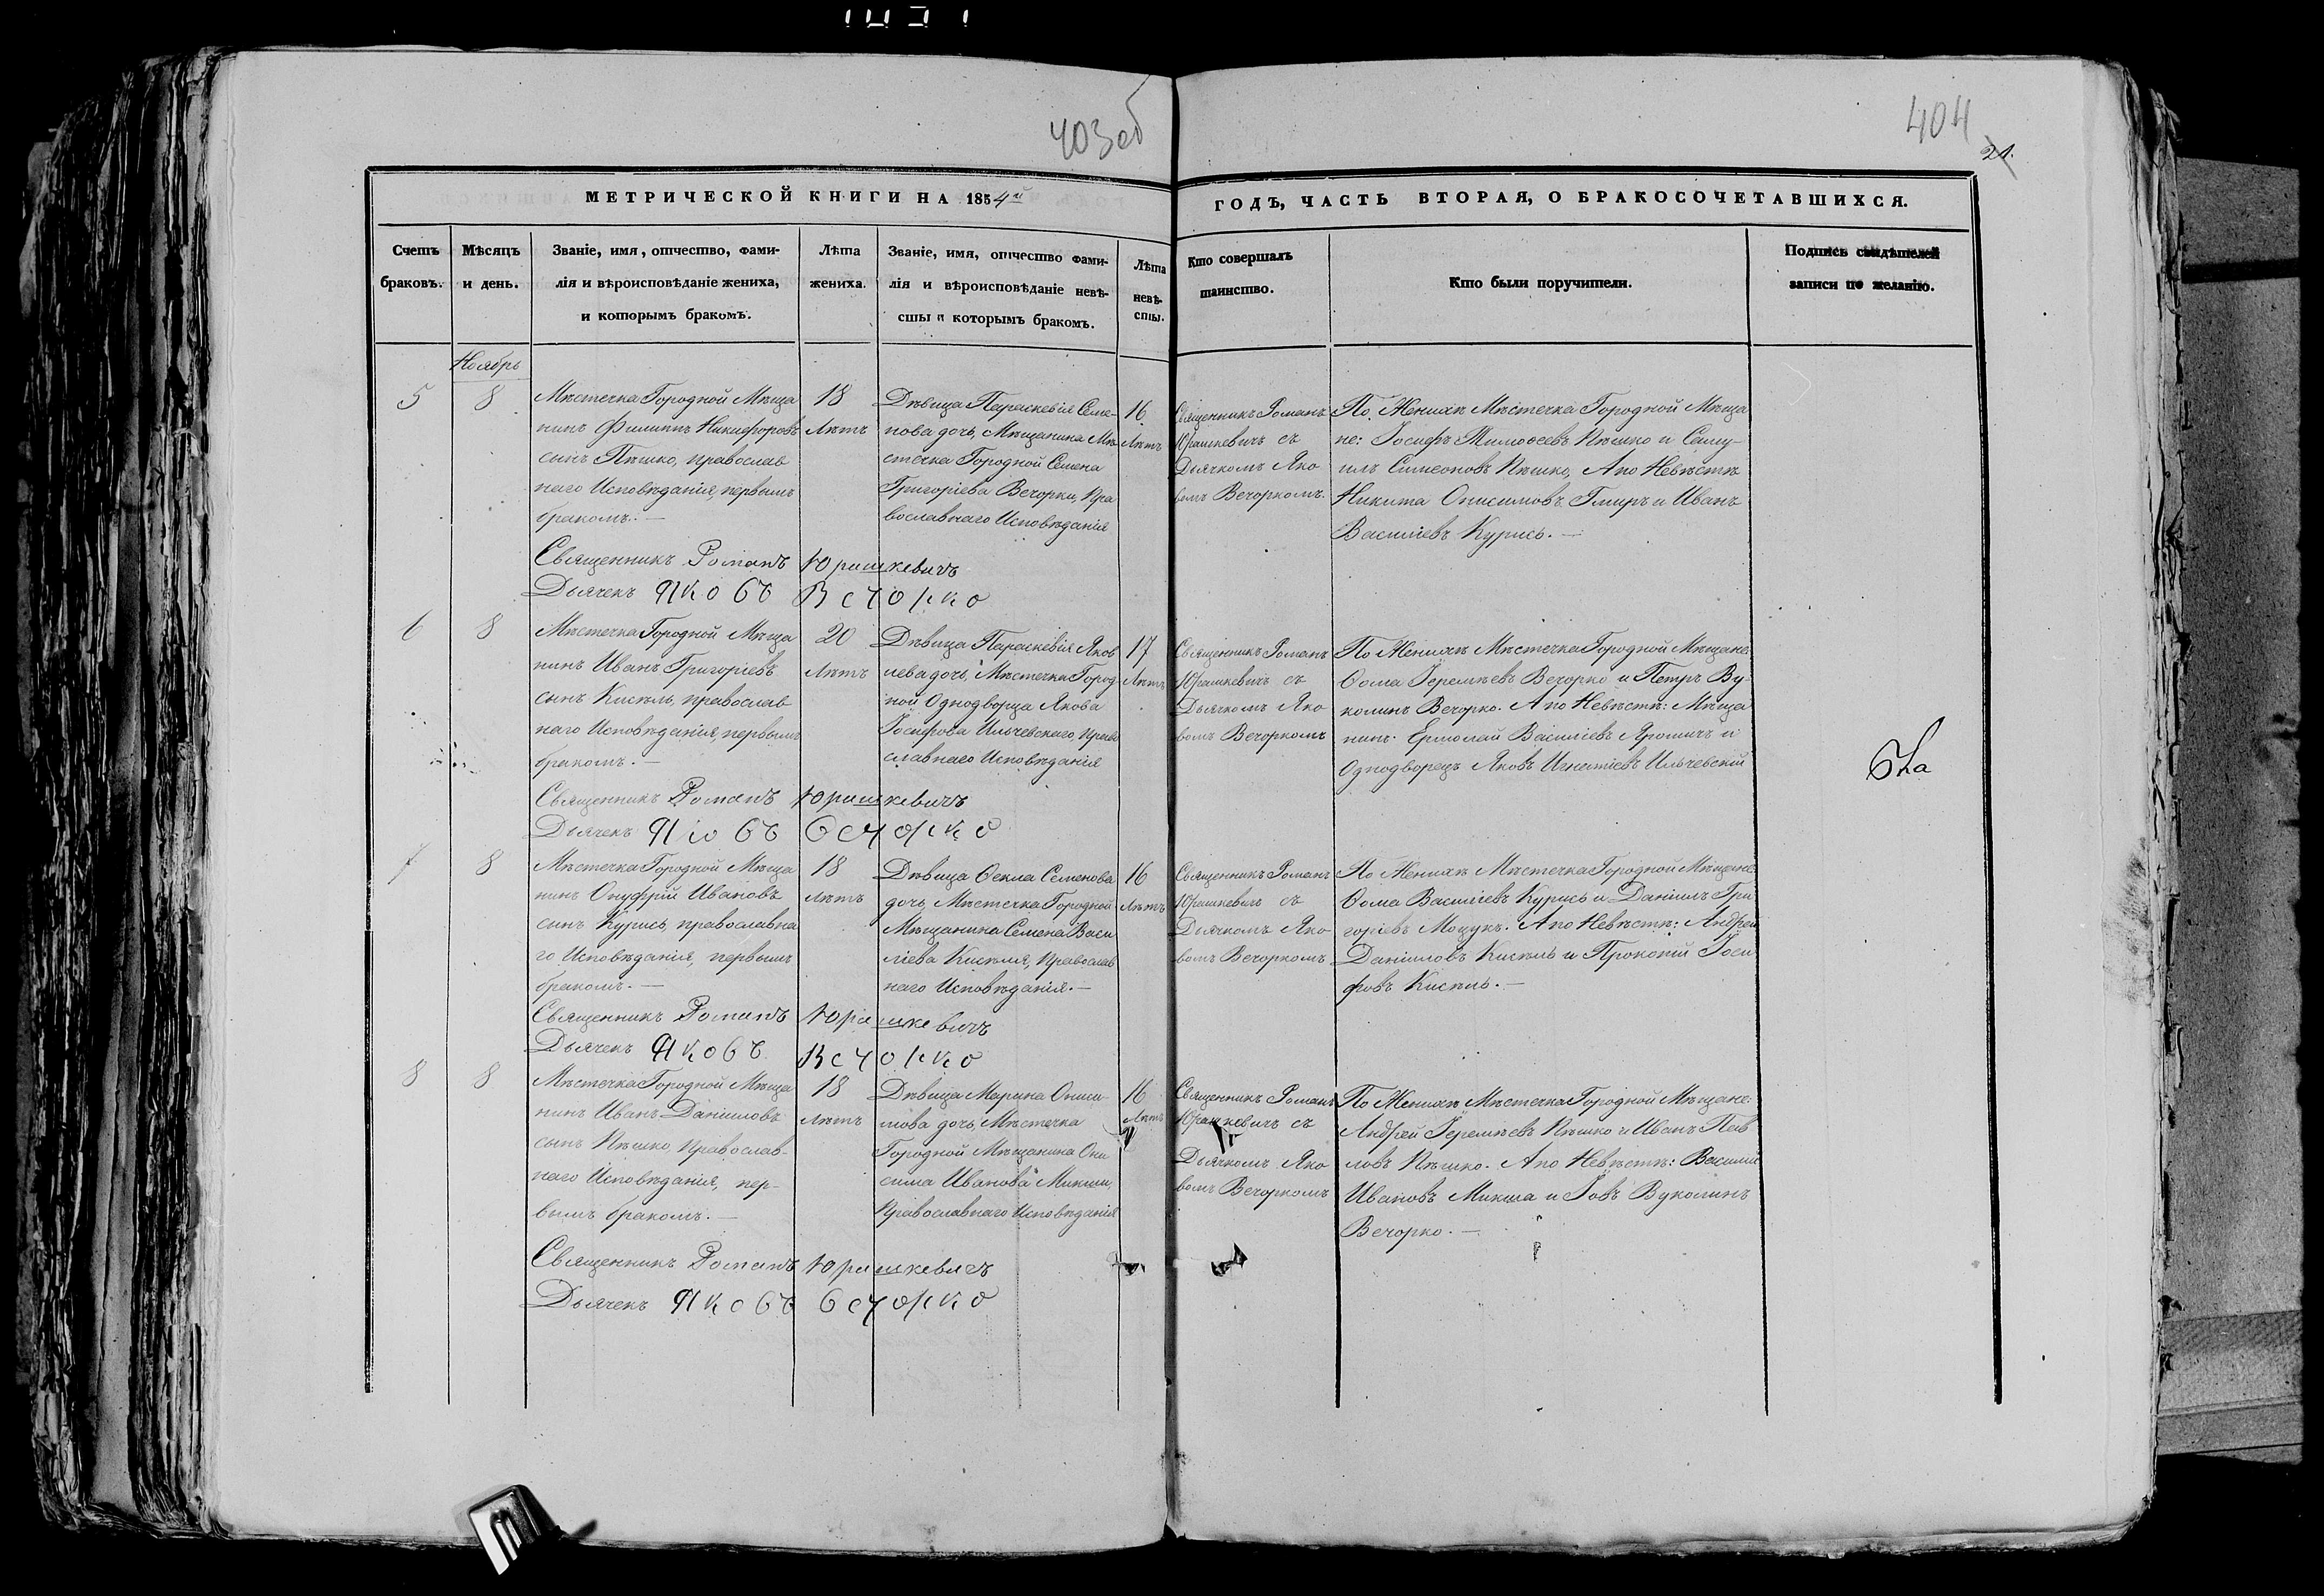 403об
404
21.
МЕТРИЧЕСКОЙ КНИГИ НА 1854й
ГОДЪ, ЧАСТЬ ВТОРАЯ, О БРАКОСОЧЕТАВШИХСЯ.
Счетъ
браковъ.
Мѣсяцъ
и день.
Званіе, имя, отчество, фами-
лія и вѣроисповѣданіе жениха,
и которымъ бракомъ.
Лѣта
жениха.
Званіе, имя, отчество фами-
лія и вѣроисповѣданіе невѣ-
сты и которымъ бракомъ.
Лѣта
невѣ-
сты.
Кто совершалъ
таинство.
Кто были поручители.
Подпись свидѣтелей
записи по желанію.
Ноябрь
5
8
Мѣстечка Городной Мѣща
нинъ Филиппъ Никифоровъ
сынъ Пѣшко, православ
наго Исповѣданія, первымъ
бракомъ. —
18
Лѣтъ
Дѣвица Параскевія Семе-
нова дочь, Мѣщанина Мѣ
стечка Городной Семена
Григоріева Вечорки, Пра
вославнаго Исповѣданія
16
Лѣтъ
Священникъ Романъ
Юрашкевичъ съ
Дьячкомъ Яко
вомъ Вечоркомъ.
По Женихѣ Мѣстечка Городной Мѣща
не: Іосифъ Тимофеевъ Пѣшко и Саму-
илъ Симеоновъ Пѣшко, А по Невѣстѣ
Никита Онисимовъ Гмиръ и Иванъ
Василіевъ Курисъ. —
Священникъ Романъ Юрашкевичъ
Дьячекъ Яковъ Вечорко
6
8
Мѣстечка Городной Мѣща
нинъ Иванъ Григоріевъ
сынъ Кисѣль, православ
наго Исповѣданія, первымъ
бракомъ. —
20
Лѣтъ
Дѣвица Параскевія Яков
лева дочь, Мѣстечка Город-
ной Однодворца Якова
Іосифова Ильчевскаго, Право
славнаго Исповѣданія
17
Лѣтъ
Священникъ Романъ
Юрашкевичъ съ
Дьячкомъ Яко
вомъ Вечоркомъ
По Женихѣ Мѣстечка Городной Мѣщане:
Ѳома Іеремѣевъ Вечорко и Петръ Ву-
колинъ Вечорко. А по Невѣстѣ: Мѣща
нинъ Ермолай Василіевъ Яромичъ и
Однодворецъ Яковъ Игнатіевъ Ильчевскій
Священникъ Романъ Юрашкевичъ
Дьячекъ Яковъ Вечорко
7
8
Мѣстечка Городной Мѣща
нинъ Онуфрій Ивановъ
сынъ Курисъ, православна
го Исповѣданія, первымъ
бракомъ. —
18
лѣтъ
Дѣвица Ѳекла Семенова
дочь, Мѣстечка Городной
Мѣщанина Семена Васи
ліева Кисѣля, Православ
наго Исповѣданія. —
16
Лѣтъ
Священникъ Романъ
Юрашкевичъ съ
Дьячкомъ Яко
вомъ Вечоркомъ
По Женихѣ Мѣстечка Городной Мѣщане:
Ѳома Василіевъ Курисъ и Даніилъ Гри
горіевъ Мощукъ. А по Невѣстѣ: Андрей
Даніиловъ Кисѣль и Прокопій Іоси
фовъ Кисѣль. —
Священникъ Романъ Юрашкевичъ
Дьячекъ Яковъ Вечорко
8
8
Мѣстечка Городной Мѣща
нинъ Иванъ Даніиловъ
сынъ Пѣшко, Православ-
наго Исповѣданія, пер-
вымъ бракомъ. —
18
лѣтъ
Дѣвица Марина Ониси-
мова дочь, Мѣстечка
Городной Мѣщанина Они
сима Иванова Микши,
Православнаго Исповѣданія
16
Лѣтъ
Священникъ Романъ
Юрашкевичъ съ
Дьячкомъ Яко
вомъ Вечоркомъ
По Женихѣ Мѣстечка Городной Мѣщане:
Андрей Іеремѣевъ Пѣшко и Иванъ Пав
ловъ Пѣшко. А по Невѣстѣ: Василій
Ивановъ Микша и Іовъ Вуколинъ
Вечорко. —
Священникъ Романъ Юрашкевичъ
Дьячекъ Яковъ Вечорко